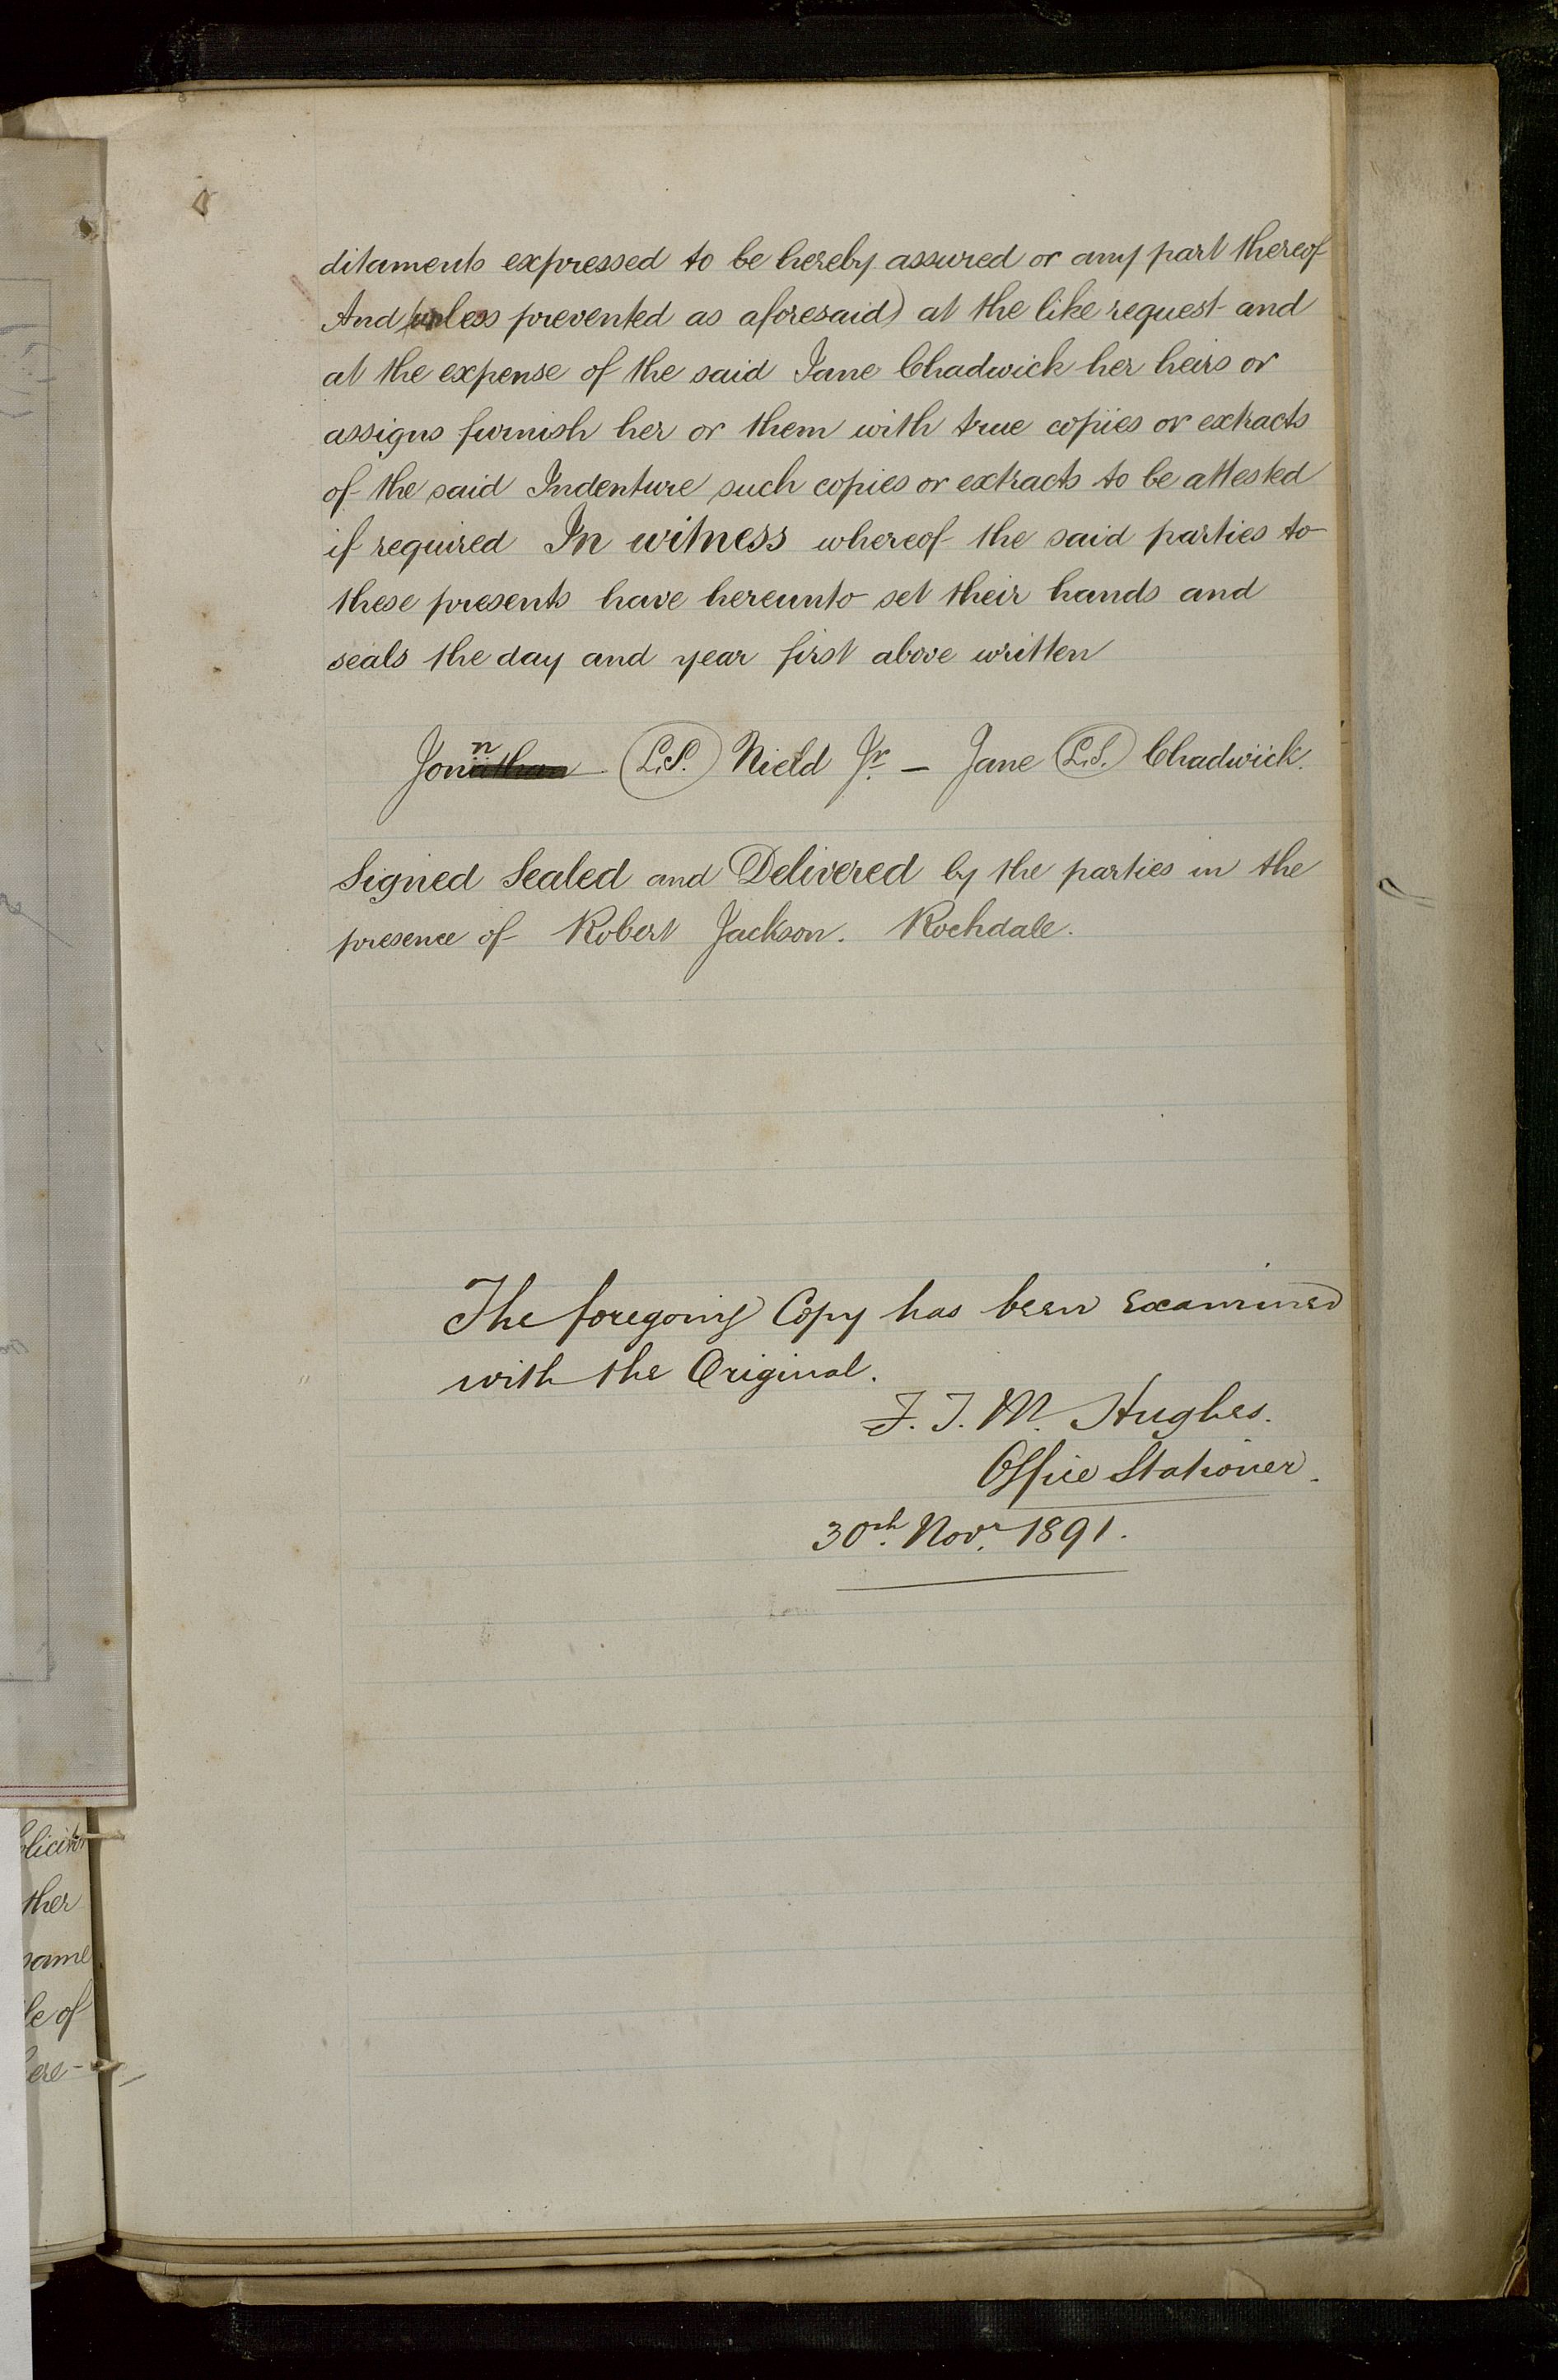 ditaments expressed to be hereby assured or any part thereof
And (unless prevented as aforesaid) at the like request and
at the expense of the said Jane Chadwick her heirs or
assigns furnish her or them with true copies or extracts
of the said Indenture such copies or extracts to be attested
if required In witness whereof the said parties to
these presents have hereunto set their hands and
seals the day and year first above written
Jonⁿ (L.S.) Nield Jr. — Jane (L.S.) Chadwick.
Signed Sealed and Delivered by the parties in the
presence of Robert Jackson. Rochdale.
The foregoing Copy has been Examined
with the Original.
F. J. M. Hughes.
Office Stationer.
30th. Novr. 1891.
ther
same